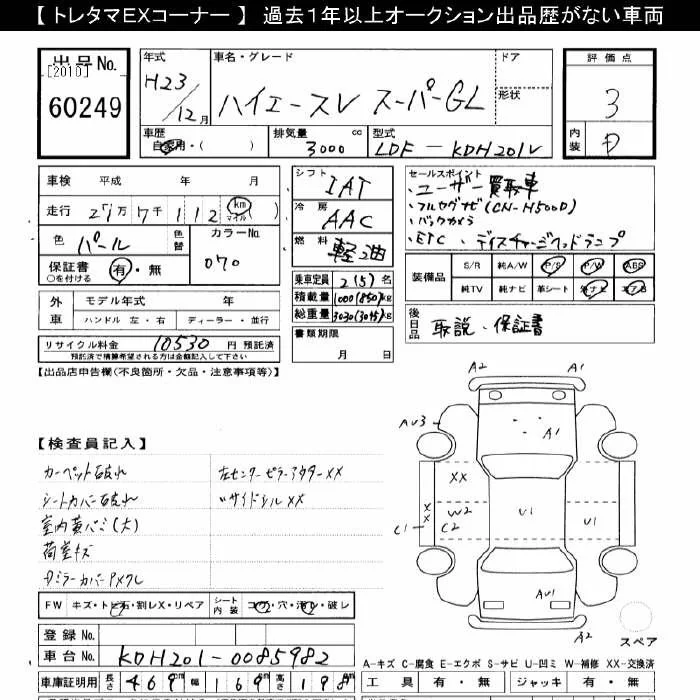 【 トレタマEXコーナー 】 過去１年以上オークション出品歴がない車両
出品No. [2010] 60249
年式 H23/12月
車名・グレード ハイエースV スーパーGL
ドア
形状
評価点 3
内装 D
車歴 自家用・( )
排気量 3000 cc
型式 LDF-KDH201V
車検 平成 年 月
走行 21万7千112 km マイル ( )
色 パール 色替
カラーNo. 070
保証書 ○を付ける 有・無
外車 モデル年式 年
ハンドル 左・右 ディーラー・並行
リサイクル料金 10530 円 預託済
預託済で積算希望される方は金額記入して下さい
シフト IAT
冷房 AAC
燃料 軽油
乗車定員 2(5) 名
積載量 1000(850)kg
総重量 3030(3045)kg
書類期限
月 日
セールスポイント
・ユーザー買取車
・フルセグナビ(CN-H500D)
・バックカメラ
・ETC・ディスチャージヘッドランプ
装備品 S/R 純A/W P/S P/W ABS
純TV 純ナビ 革シート 社ナビ エアB
後日品 取説、保証書
【出品店申告欄(不良箇所・欠品・注意事項等)】
【検査員記入】
カーペット破れ
シートカバー破れ
室内黄バミ(大)
荷室キズ
左センターピラーアウターXX
〃サイドシルXX
A2 A1
AU3 A1
XX
W2
C1 XX C2 U1 U1
AU1
A2
スペア
FW キズ・トビ石・割レX・リペア
シート内装 コゲ・穴・汚レ・破レ
登録No.
車台No. KDH201-0085982
車庫証明用 長さ 469 幅 169 高さ 198
A-キズ C-腐食 E-エクボ S-サビ U-凹ミ W-補修 XX-交換済
工具 有・無 ジャッキ 有・無